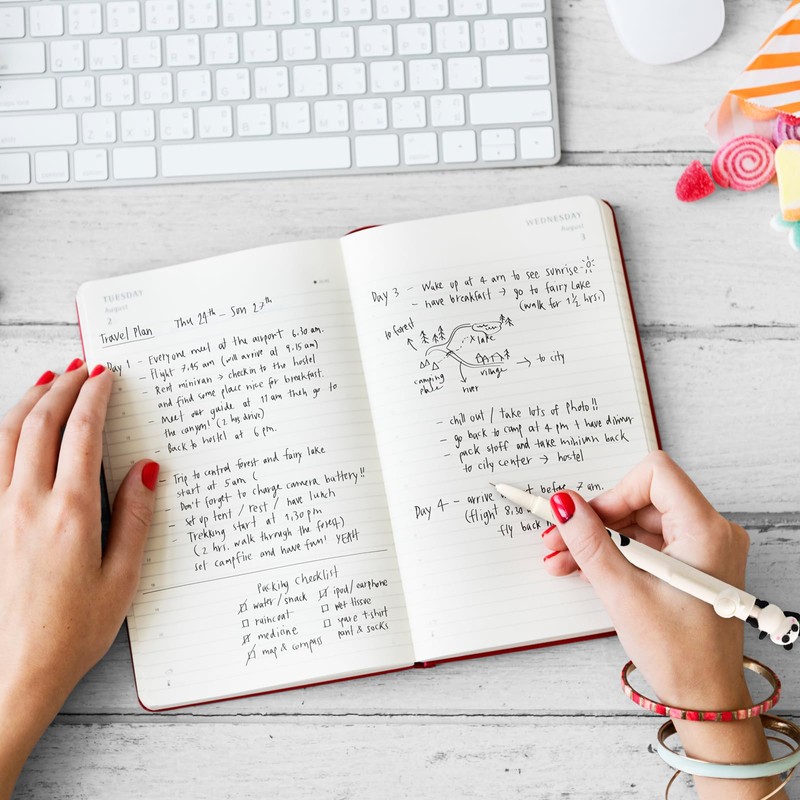 TUESDAY
August
2
Thu 24th - Sun 27th
Travel Plan
Day 1 - Everyone meet at the airport 6.30 am.
- Flight 7.45 am (will arrive at 9.15 am)
- Rent minivan → check in to the hostel
and find some place nice for breakfast.
- Meet our guide at 11 am then go to
the canyon! (2 hrs. drive)
- Back to hostel at 6 pm.
- Trip to central forest and fairy lake
start at 5 am (
- Don't forget to charge camera battery!!
- set up tent / rest / have lunch
- Trekking start at 1,30 pm
(2 hrs. walk through the forest)
set campfire and have fun! YEAH
Packing checklist
water/snack
raincoat
medicine
map & compass
ipod/earphone
wet tissue
spare t-shirt
pant & socks
WEDNESDAY
August
3
Day 3 - Wake up at 4 am to see sunrise
- have breakfast → go to fairy Lake
(walk for 1 1/2 hrs.)
to forest
x lake
→ to city
village
camping
place
river
- chill out / take lots of photo!!
- go back to camp at 4 pm + have dinner
- pack stuff and take minivan back
to city center → hostel
Day 4 - arrive before 7 am.
(flight 8,30
fly back